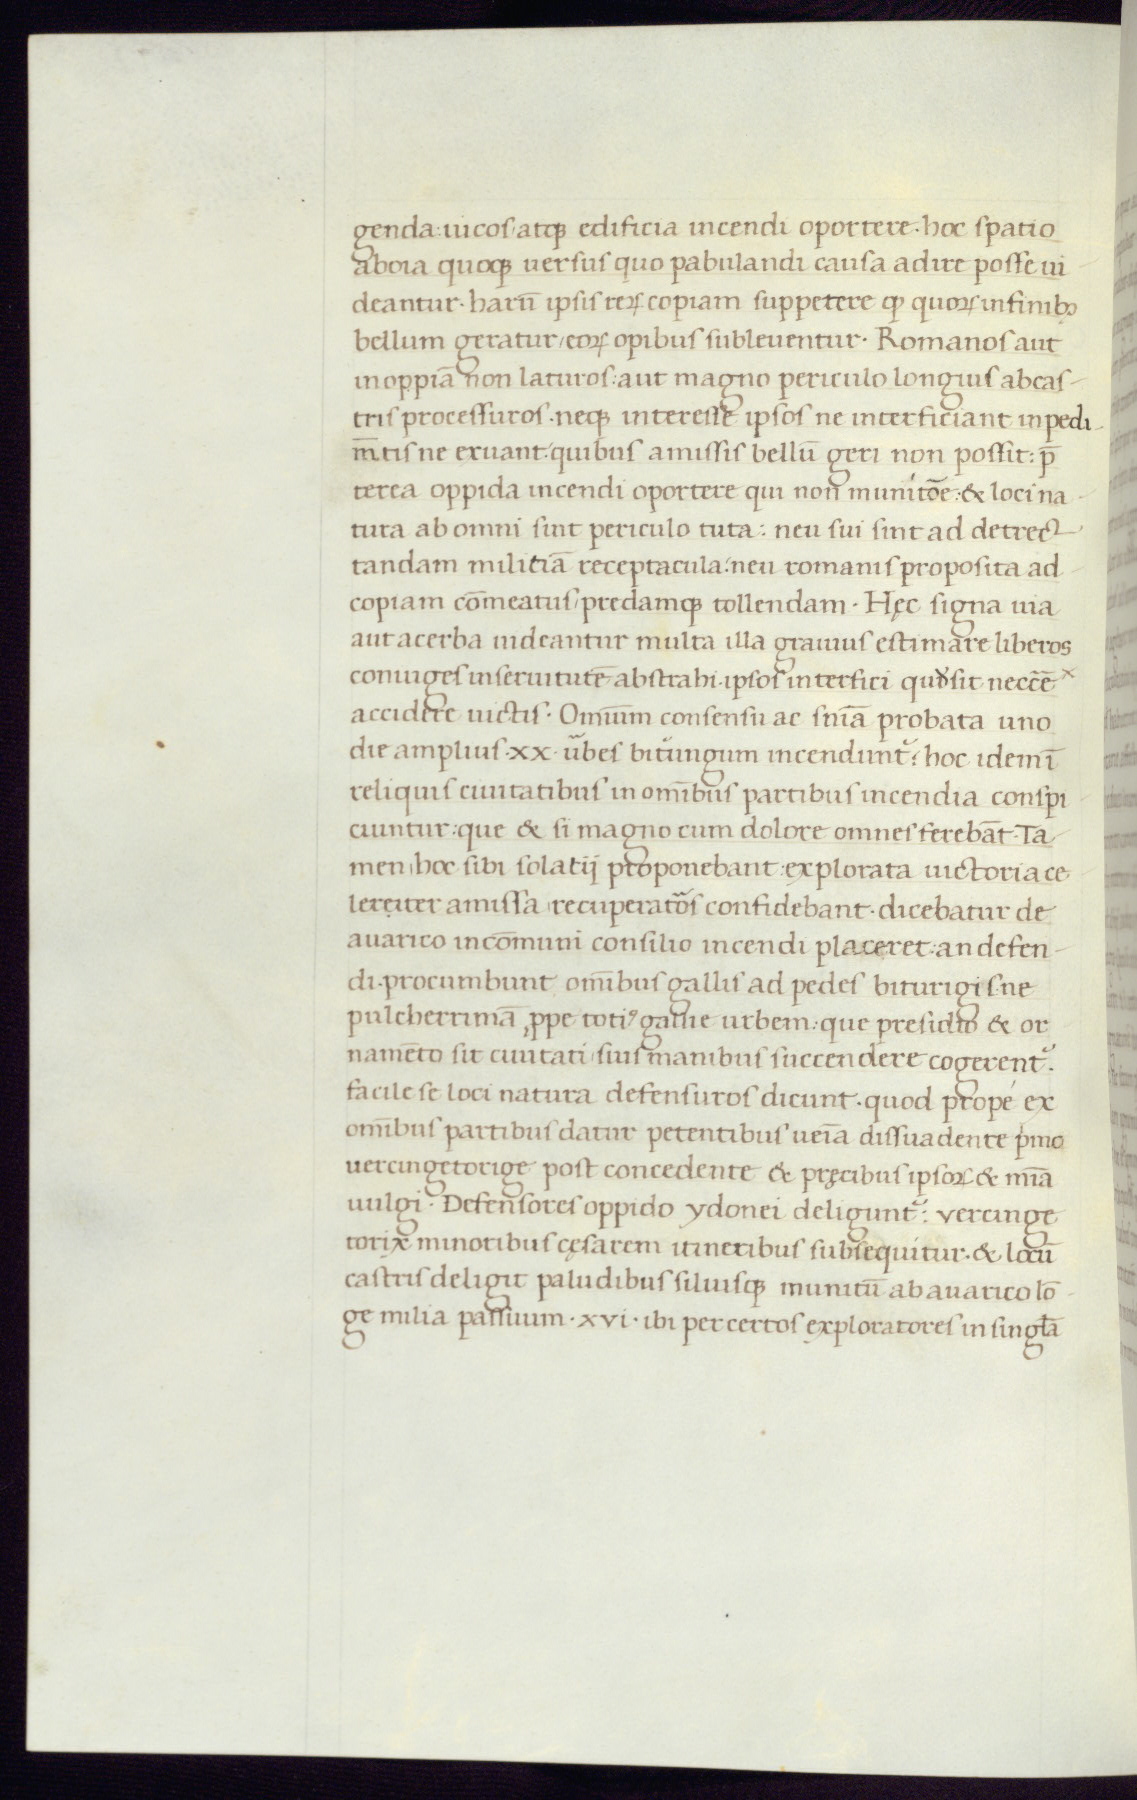 genda: uicos, atq̃ edificia incendi oportere. hoc spatio
aboia quoq̃ uersus quo pabulandi causa adire posse ui
deantur. harū ipsis rerꝝ copiam suppetere qꝫ quorꝝ infinibꝫ
bellum geratur, eorꝝ opibus subleuentur. Romanos aut
inoppiā non laturos: aut magno periculo longius abcas-
tris processuros. neq̃ interesse ipsos ne interficiant inpedi-
m̄tis ne exuant: quibus amissis bellū geri non possit: p̄
terea oppida incendi oportere qui non munitōe: & loci na
tura ab omni sint periculo tuta: neu sui sint ad detrec
tandam militiā receptacula: neu romanis proposita ad
copiam cōmeatus, predamq̃ tollendam. Hęc signa uia
aut acerba uideantur multa illa grauius estimare liberos
coniuges inseruitutē abstrahi. ipsos interfici qu sit neccēˣ
accidere uictis. Omīum consensu ac sn̄ia probata uno
die amplius .xx. urbes biturigum incendunt᷑: hoc idem ī
reliquis ciuitatibus in om̄ibus partibus incendia conspi
ciuntur: que & si magno cum dolore omnes ferebāt. Ta
men, hoc sibi solatij proponebant: explorata uictoria ce
lereiter amissa, recuperatōs confidebant. dicebatur de
auarico incōmuni consilio incendi placeret: an defen-
di. procumbunt om̄ibus gallis ad pedes biturigis. ne
pulcherrimā ꝓpe totiꝰ gallie urbem: que presidio & or
namēto sit ciuitati, suis manibus succendere cogerent᷑.
facile se loci natura defensuros dicunt. quod propé ex
om̄ibus partibus datur petentibus ueīa dissuadente p̄mo
uercingetorige post concedente & pręcibus ipsorꝝ & m̄ia
uulgi. Defensores oppido ydonei deligunt᷑: vercinge
torix minoribus cęsarem itineribus subsequitur. & locū
castris deligit paludibus siluisq̃ munitū ab auarico lō-
ge milia passuum .xvi. ibi per certos exploratores in singl̄a